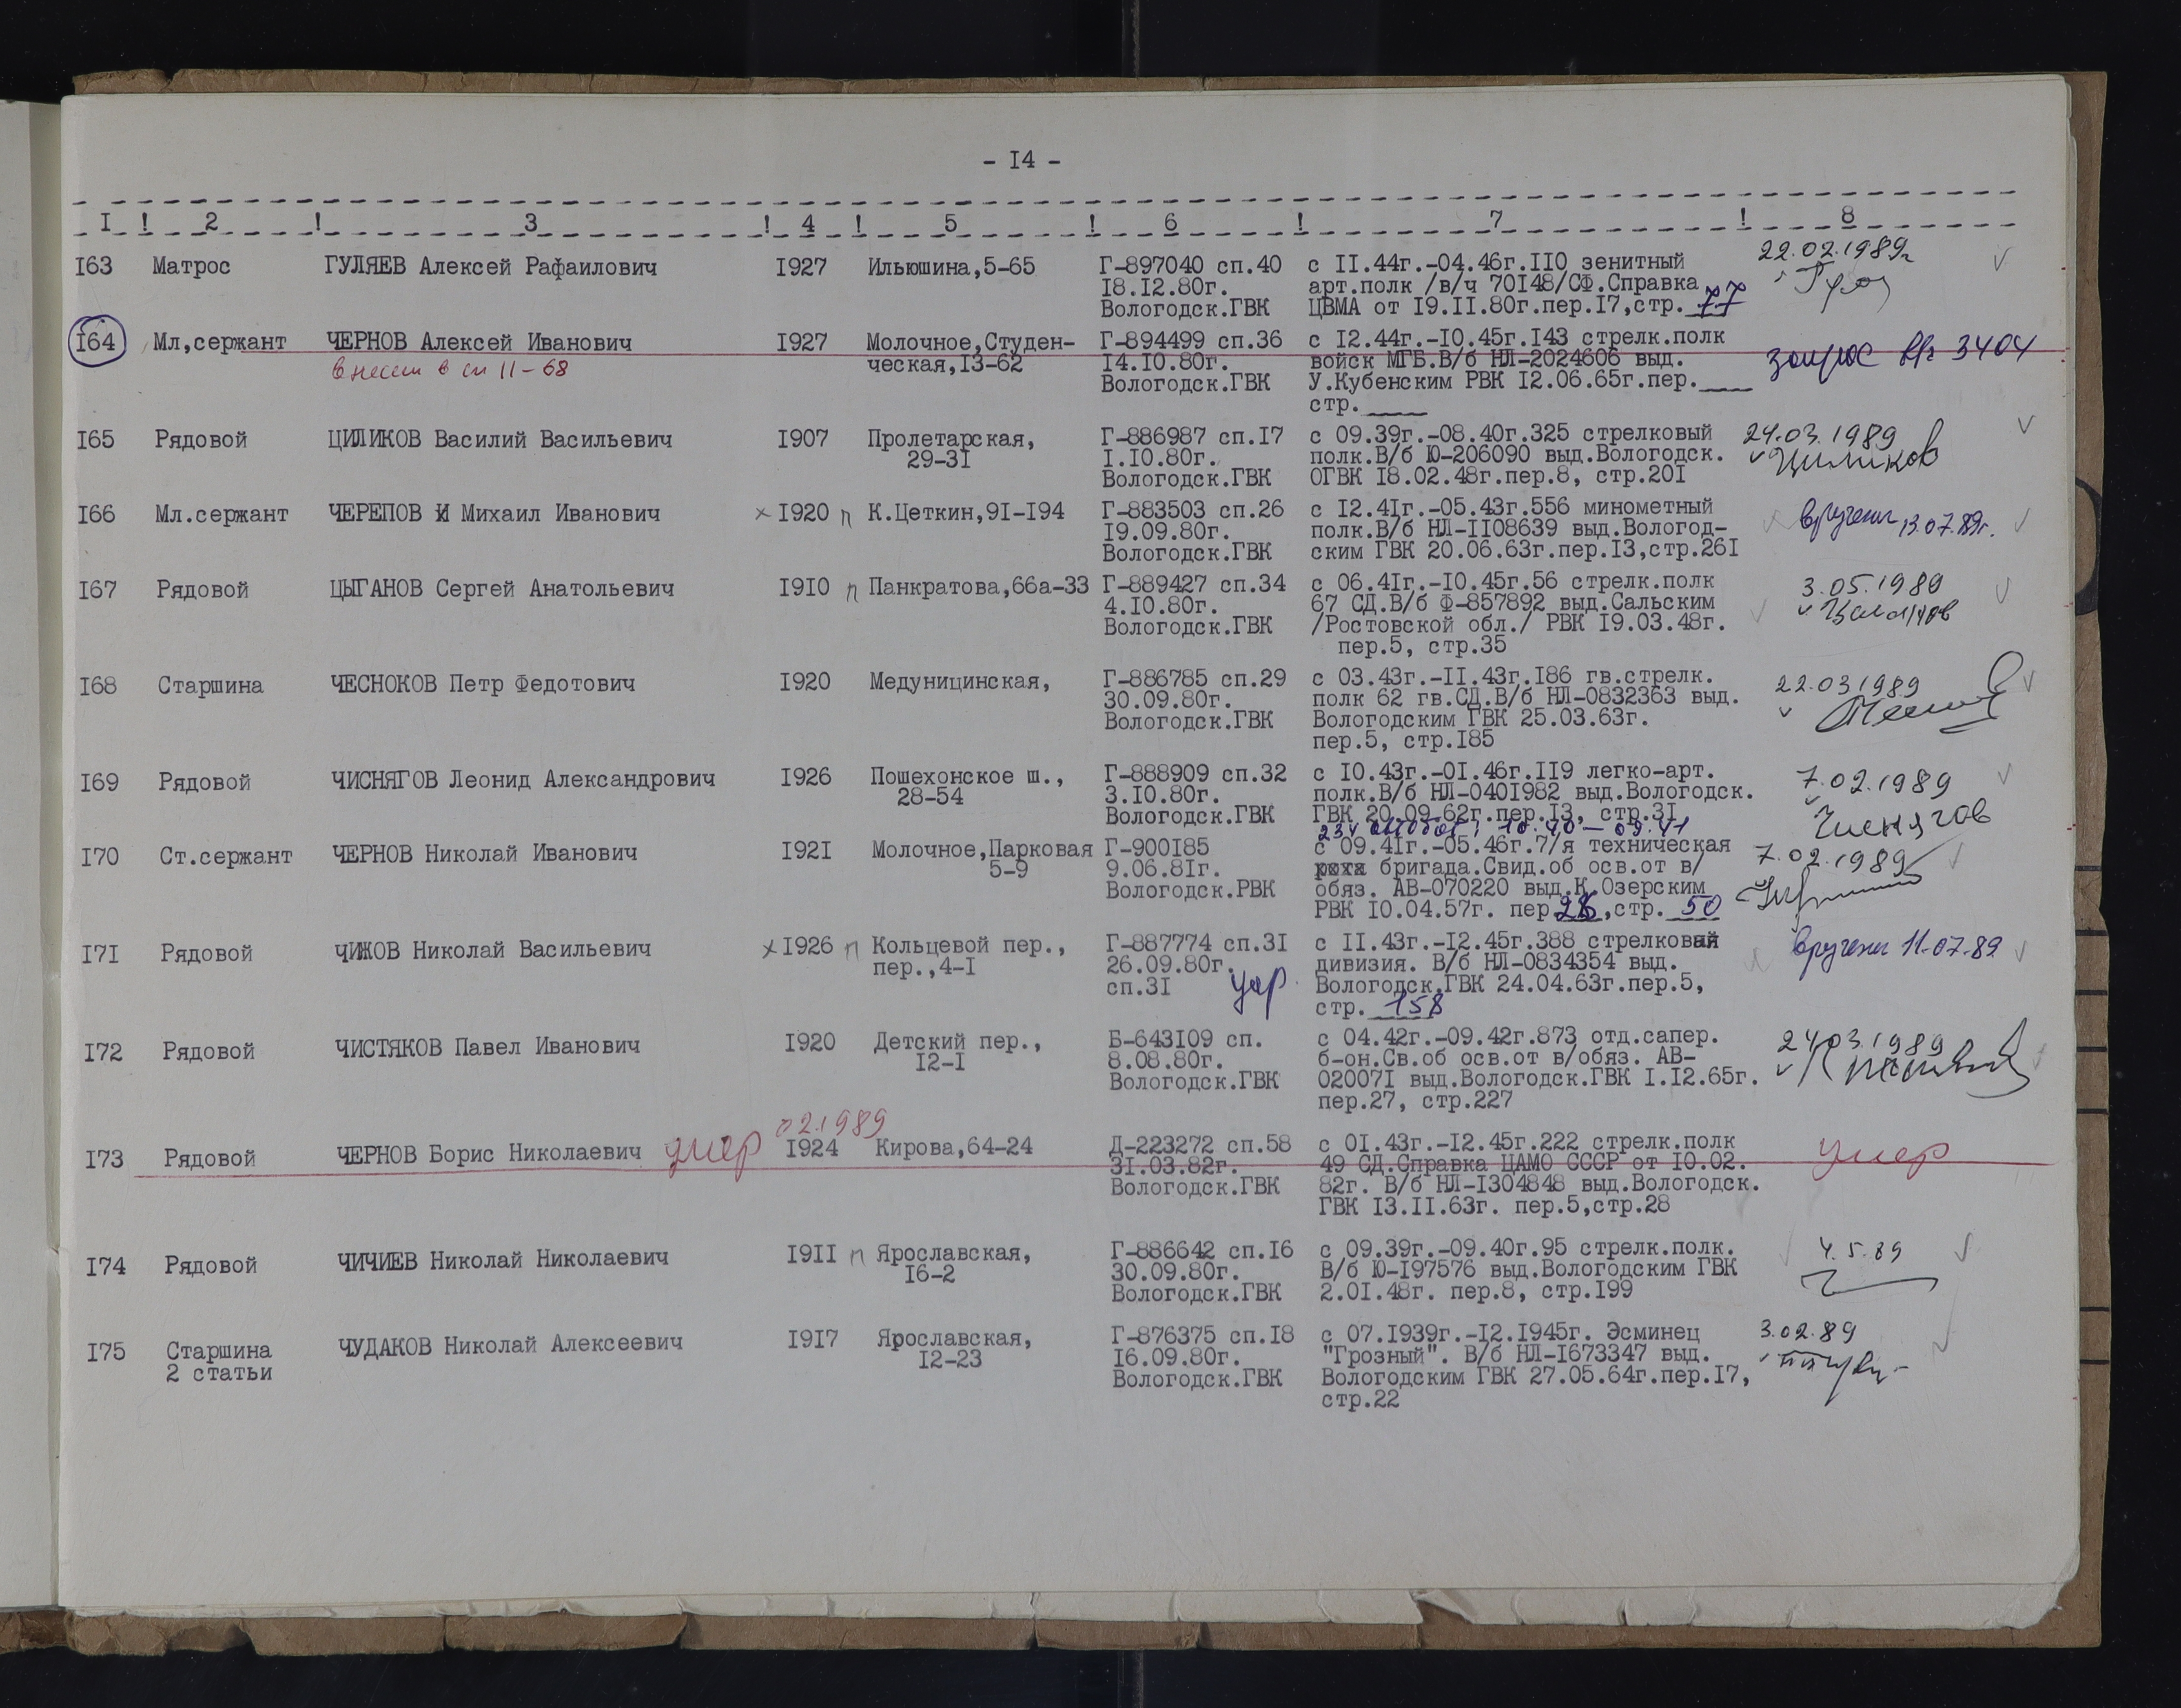 - I4 -
I ! 2 ! 3 ! 4 ! 5 ! 6 ! 7 ! 8
I63 Матрос ГУЛЯЕВ Алексей Рафаилович I927 Ильюшина,5-65 Г-897040 сп.40 с II.44г.-04.46г.II0 зенитный 22.02.1989г
I8.I2.80г. арт.полк /в/ч 70I48/СФ.Справка
Вологодск.ГВК ЦВМА от I9.II.80г.пер.I7,стр. 77
I64 Мл,сержант ЧЕРНОВ Алексей Иванович I927 Молочное,Студен- Г-894499 сп.36 с I2.44г.-I0.45г.I43 стрелк.полк запрос 3404
внесен в сп 11-68 ческая,I3-62 I4.I0.80г. войск МГБ.В/б НЛ-2024606 выд.
Вологодск.ГВК У.Кубенским РВК I2.06.65г.пер.____
стр.____
I65 Рядовой ЦИЛИКОВ Василий Васильевич I907 Пролетарская, Г-886987 сп.I7 с 09.39г.-08.40г.325 стрелковый 24.03.1989
29-3I I.I0.80г. полк.В/б Ю-206090 выд.Вологодск. Циликов
Вологодск.ГВК ОГВК I8.02.48г.пер.8, стр.20I
I66 Мл.сержант ЧЕРЕПОВ И Михаил Иванович х I920 п К.Цеткин,9I-I94 Г-883503 сп.26 с I2.4Iг.-05.43г.556 минометный вручены 13.07.89г.
I9.09.80г. полк.В/б НЛ-II08639 выд.Вологод-
Вологодск.ГВК ским ГВК 20.06.63г.пер.I3,стр.26I
I67 Рядовой ЦЫГАНОВ Сергей Анатольевич I9I0 п Панкратова,66а-33 Г-889427 сп.34 с 06.4Iг.-I0.45г.56 стрелк.полк 3.05.1989
4.I0.80г. 67 СД.В/б Ф-857892 выд.Сальским
Вологодск.ГВК /Ростовской обл./ РВК I9.03.48г.
пер.5, стр.35
I68 Старшина ЧЕСНОКОВ Петр Федотович I920 Медуницинская, Г-886785 сп.29 с 03.43г.-II.43г.I86 гв.стрелк. 22.03 1989
30.09.80г. полк 62 гв.СД.В/б НЛ-0832363 выд.
Вологодск.ГВК Вологодским ГВК 25.03.63г.
пер.5, стр.I85
I69 Рядовой ЧИСНЯГОВ Леонид Александрович I926 Пошехонское ш., Г-888909 сп.32 с I0.43г.-0I.46г.II9 легко-арт. 7.02.1989
28-54 3.I0.80г. полк.В/б НЛ-040I982 выд.Вологодск. Чиснягов
Вологодск.ГВК ГВК 20.09.62г.пер.I3, стр.3I
234 10.40-09.41
I70 Ст.сержант ЧЕРНОВ Николай Иванович I92I Молочное,Парковая Г-900I85 с 09.4Iг.-05.46г.7/я техническая 7.02.1989
5-9 9.06.8Iг. рота бригада.Свид.об осв.от в/
Вологодск.РВК обяз. АВ-070220 выд.К.Озерским
РВК I0.04.57г. пер.28,стр. 50
I7I Рядовой ЧИЖОВ Николай Васильевич х I926 п Кольцевой пер., Г-887774 сп.3I с II.43г.-I2.45г.388 стрелковая вручены 11.07.89
пер.,4-I 26.09.80г. дивизия. В/б НЛ-0834354 выд.
сп.3I Вологодск.ГВК 24.04.63г.пер.5,
стр. 158
I72 Рядовой ЧИСТЯКОВ Павел Иванович I920 Детский пер., Б-643I09 сп. с 04.42г.-09.42г.873 отд.сапер. 24.03.1989
I2-I 8.08.80г. б-он.Св.об осв.от в/обяз. АВ-
Вологодск.ГВК 02007I выд.Вологодск.ГВК I.I2.65г.
пер.27, стр.227
02.1989
I73 Рядовой ЧЕРНОВ Борис Николаевич умер I924 Кирова,64-24 Д-223272 сп.58 с 0I.43г.-I2.45г.222 стрелк.полк умер
3I.03.82г. 49 СД.Справка ЦАМО СССР от I0.02.
Вологодск.ГВК 82г. В/б НЛ-I304848 выд.Вологодск.
ГВК I3.II.63г. пер.5,стр.28
I74 Рядовой ЧИЧИЕВ Николай Николаевич I9II п Ярославская, Г-886642 сп.I6 с 09.39г.-09.40г.95 стрелк.полк. 4.5.89
I6-2 30.09.80г. В/б Ю-I97576 выд.Вологодским ГВК
Вологодск.ГВК 2.0I.48г. пер.8, стр.I99
I75 Старшина ЧУДАКОВ Николай Алексеевич I9I7 Ярославская, Г-876375 сп.I8 с 07.I939г.-I2.I945г. Эсминец 3.02.89
2 статьи I2-23 I6.09.80г. "Грозный". В/б НЛ-I673347 выд.
Вологодск.ГВК Вологодским ГВК 27.05.64г.пер.I7,
стр.22